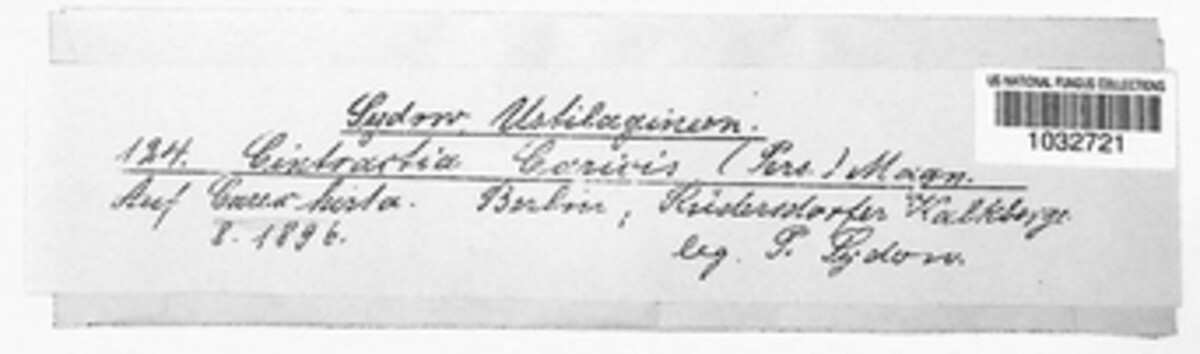 US NATIONAL FUNGUS COLLECTIONS
1032721
Sydow, Ustilagineen.
124. Cintractia Caricis (Pers.) Magn.
Auf Carex hirta. Berlin, Rüdersdorfer Kalkberge
8. 1896.
leg. P. Sydow.